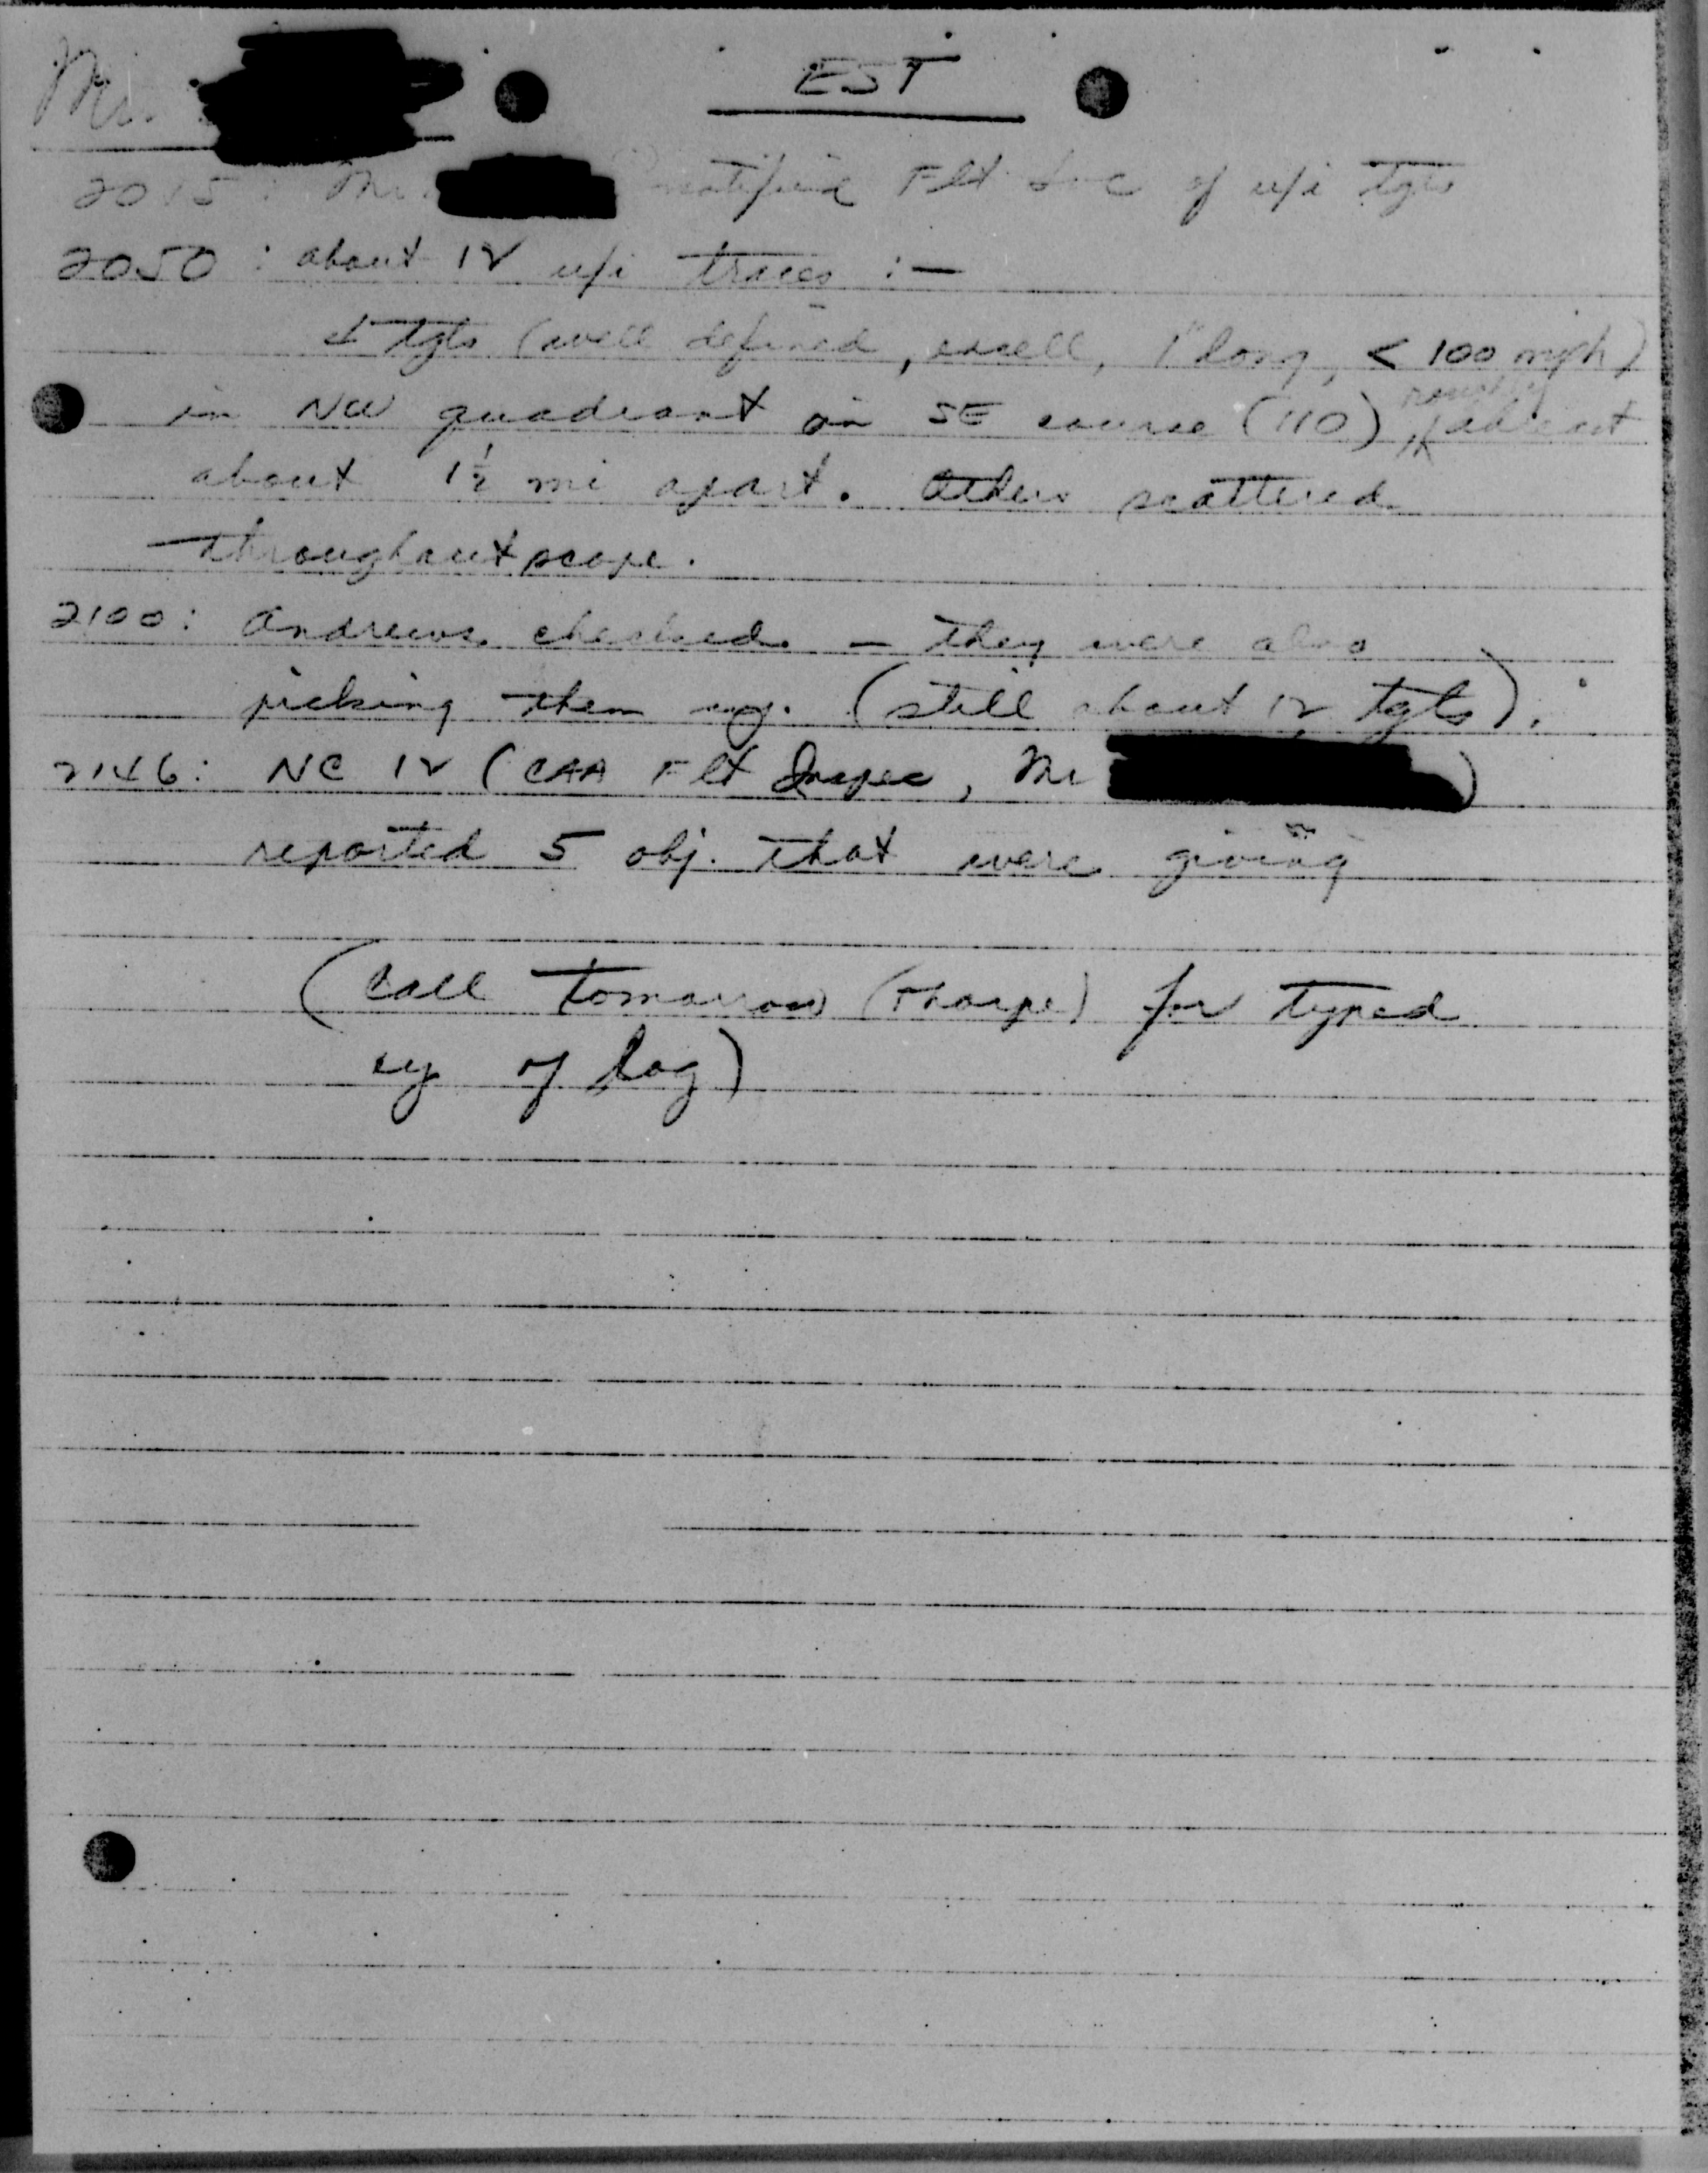 Mr.
EST
2015: Mr. notified Flt Svc of u/i tgts
2050: about 12 u/i traces :—
4 tgts (well defined, excell, 1" long, < 100 mph)
roughly
in NW quadrant on SE course (110) abreast
about 1½ mi apart. Others scattered
throughout scope.
2100: Andrews checked — they were also
picking them up. (still about 12 tgts).
2146: NC 12 (CAA Flt Inspec, Mr )
reported 5 obj. that were giving
(Call tomorrow (Thorpe) for typed
cy of log)